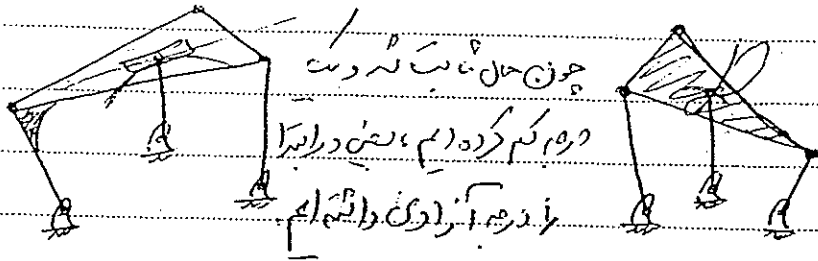 چون حال ثابت شد و یک
درجه کم کرده ایم، یعنی در ابتدا
درجه آزادی داشته ایم